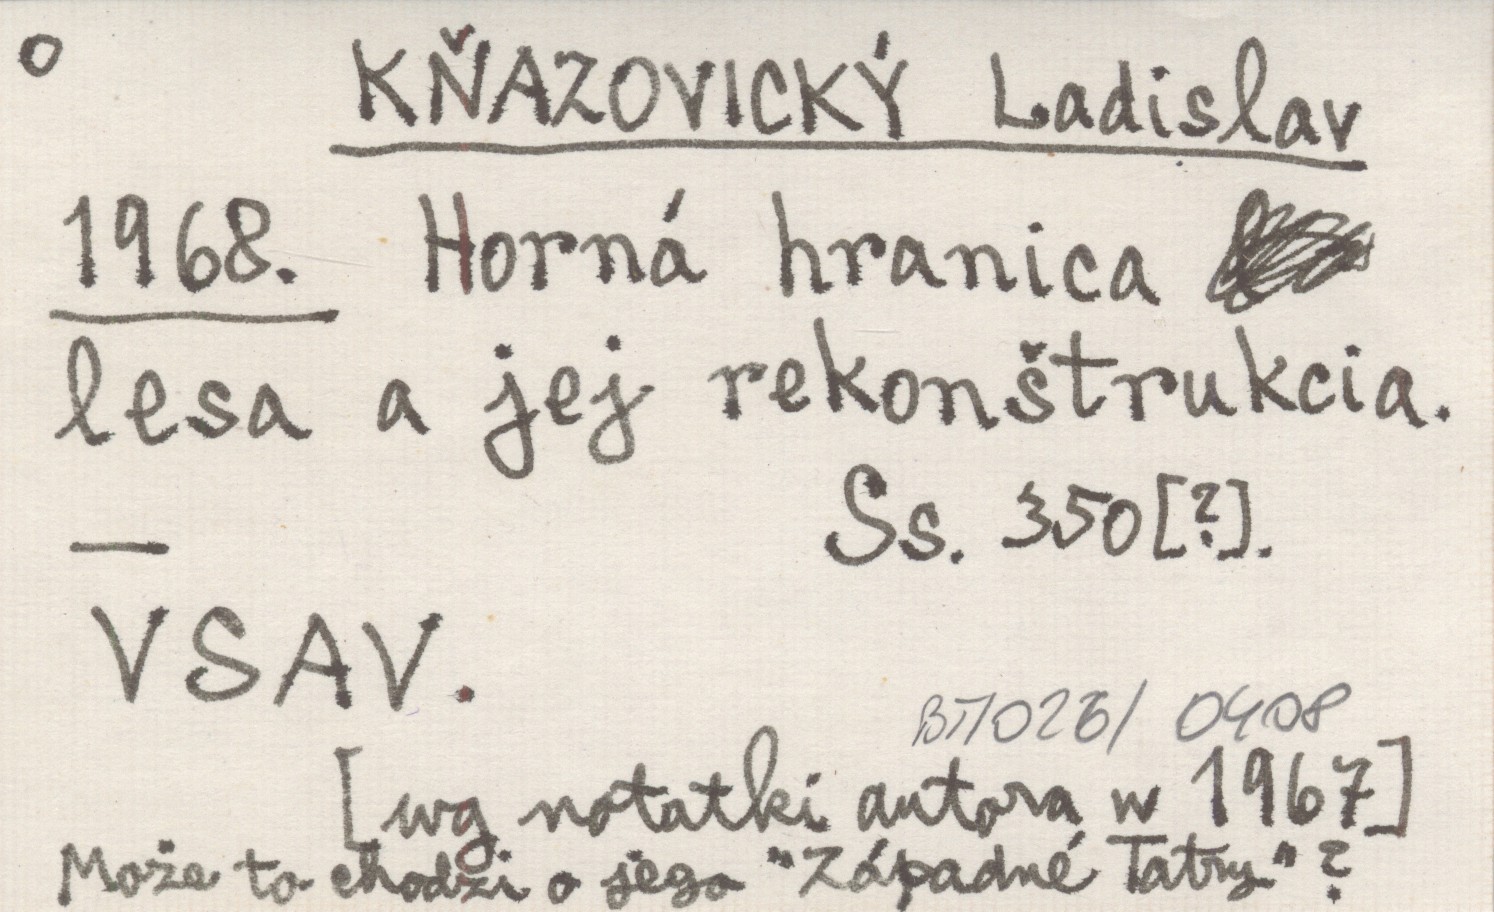 o KŇAZOVICKÝ Ladislav
1968. Horná hranica
lesa a jej rekonštrukcia.
Ss. 350[?].
—
VSAV.
BT/023/ 0408
[wg notatki autora w 1967]
Może to chodzi o jego "Západné Tatry"?